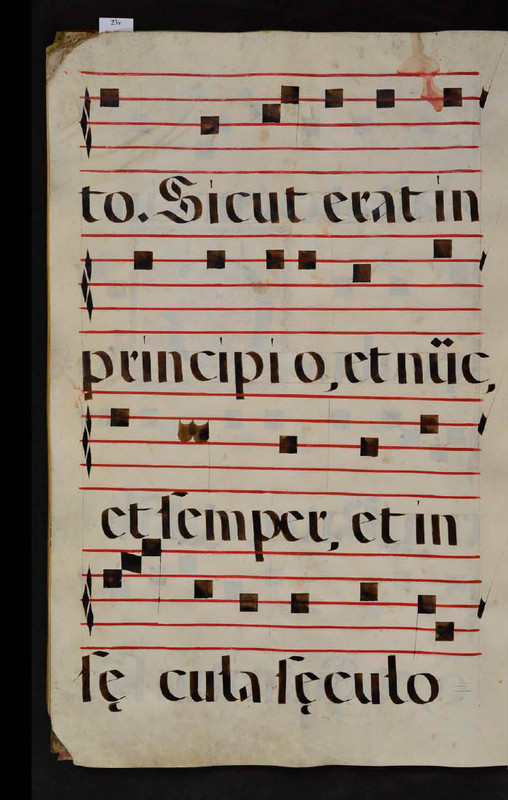 23v
to. Sicut erat in
principio, et nüc,
et semper, et in
sę cula sęculo